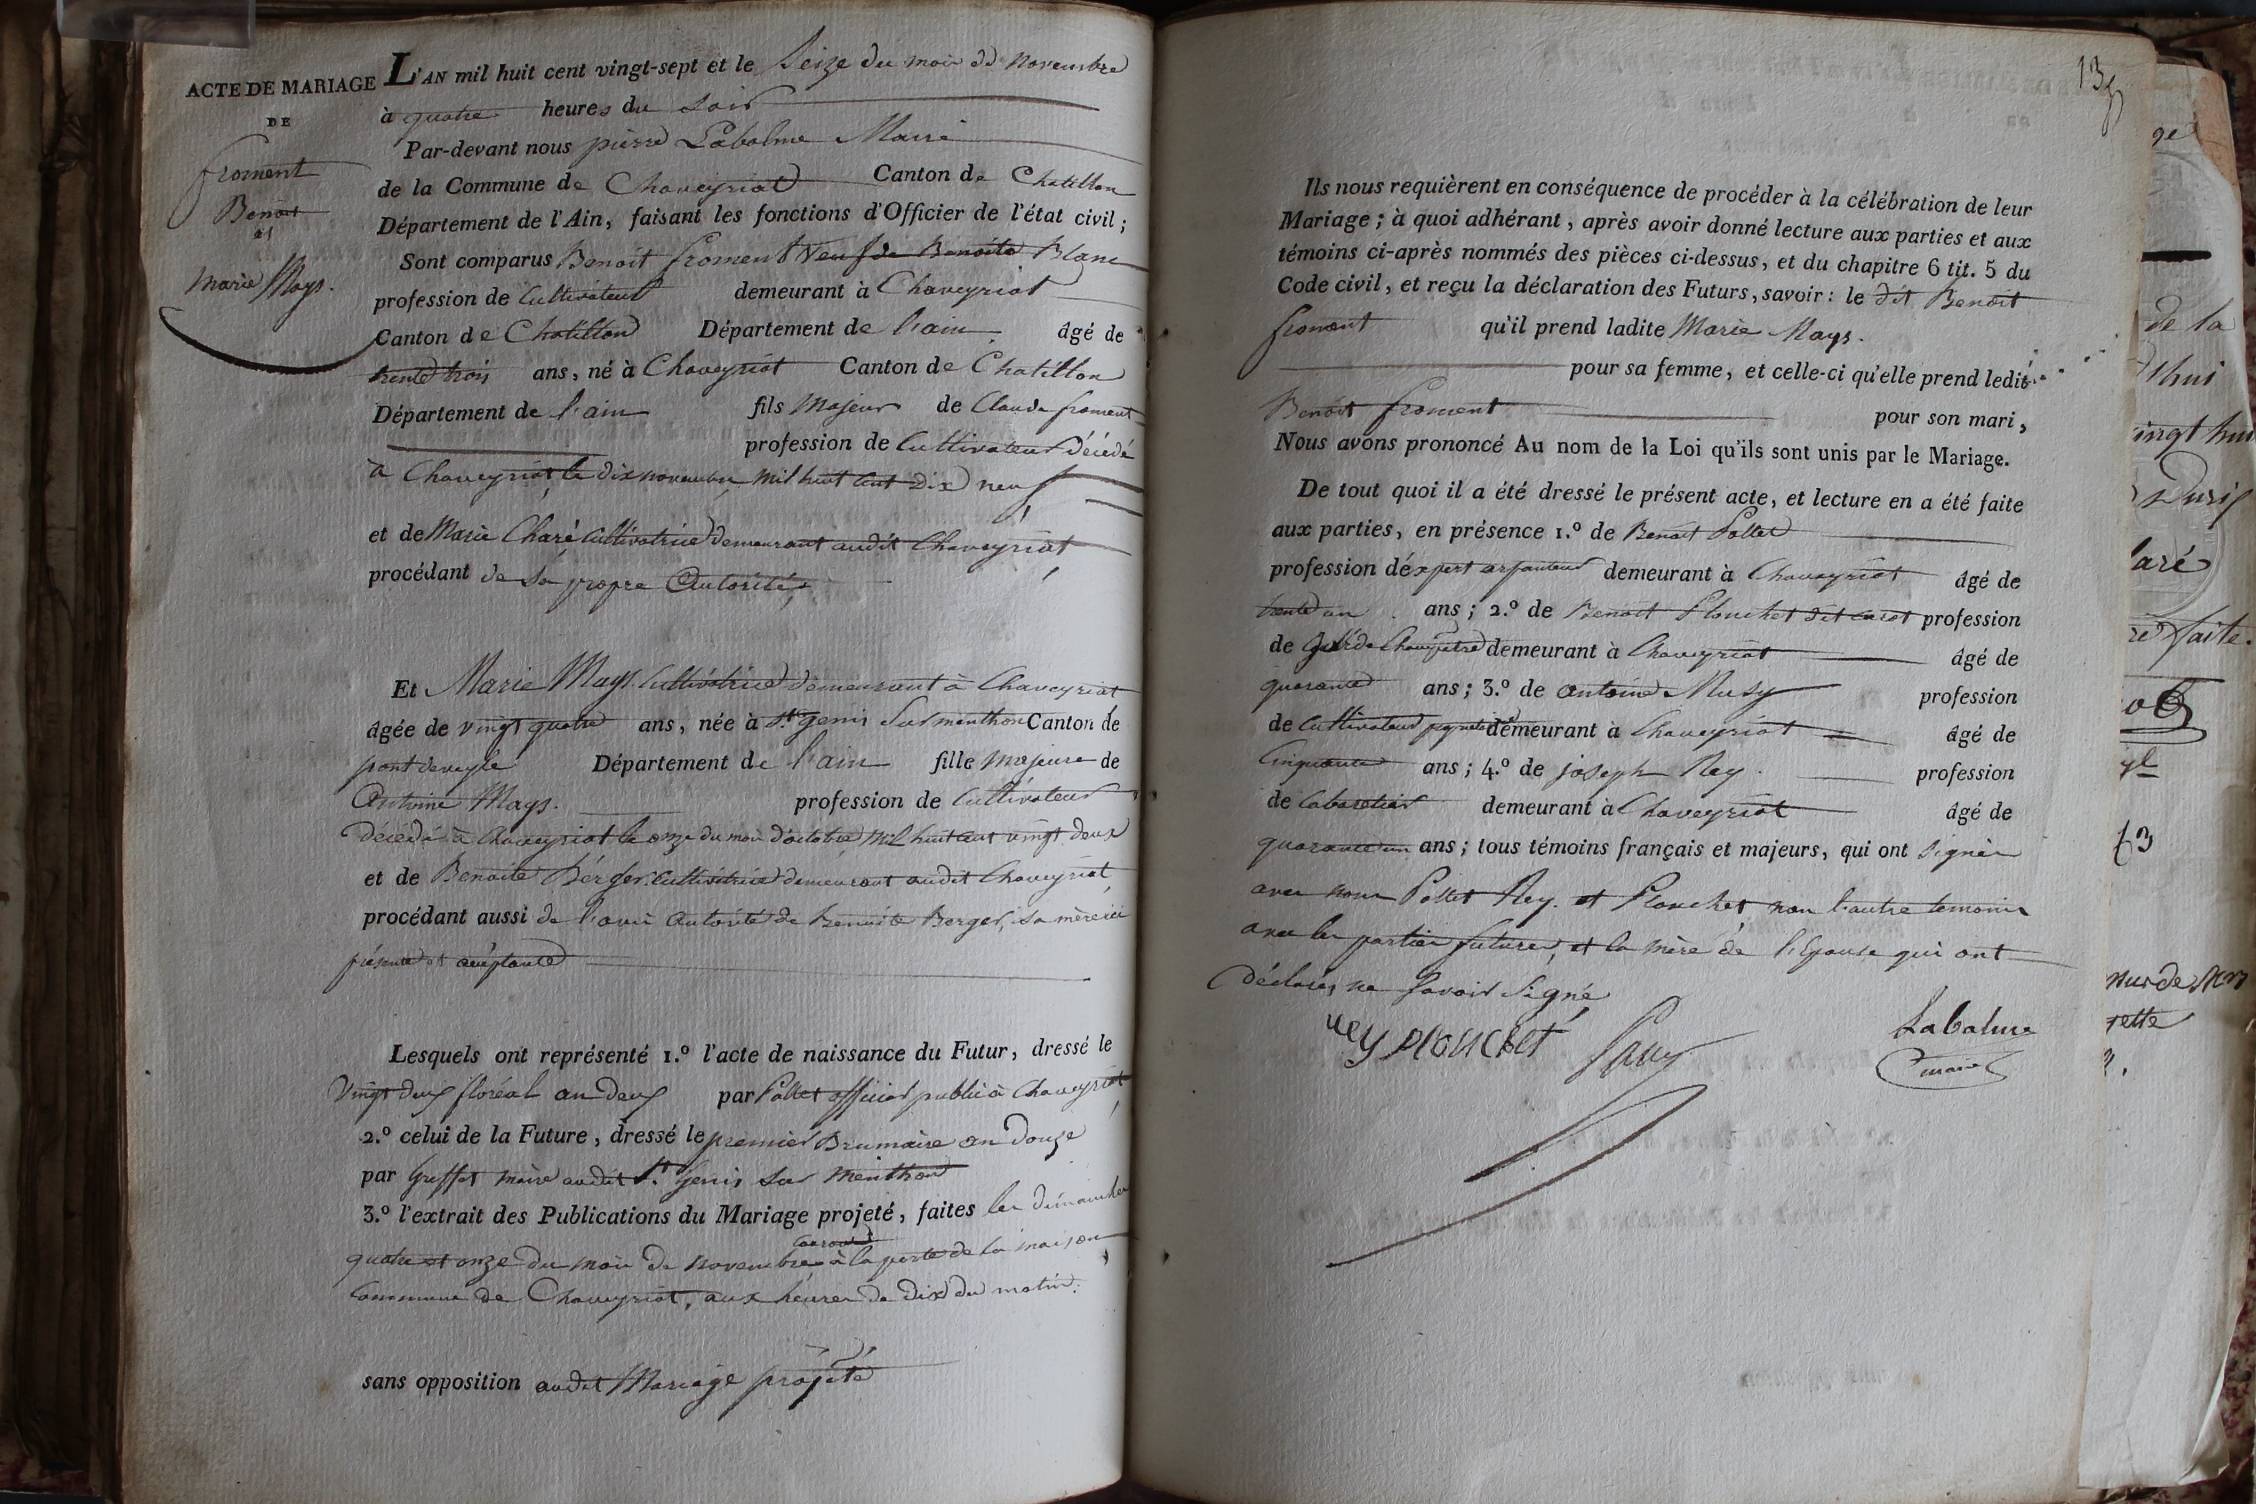 ACTE DE MARIAGE
DE
froment
Benoit
et
marie Mays.
L'AN mil huit cent vingt-sept et le Seize du mois de novembre
à quatre heures du soir
Par-devant nous pierre Labalme Maire
de la Commune de Chaveyriat Canton de Chatillon
Département de l'Ain, faisant les fonctions d'Officier de l'état civil ;
Sont comparus Benoit froment Veuf de Benoite Blanc
profession de Cultivateur demeurant à Chaveyriat
Canton de Chatillon Département de l'ain âgé de
trente trois ans, né à Chaveyriat Canton de Chatillon
Département de l'ain fils Majeur de Claude froment
profession de Cultivateur décédé
à Chaveyriat, le dix novembre mil huit cent dix neuf
et de Marie Charé Cultivatrice demeurant audit Chaveyriat
procédant de sa propre Autorité,
Et Marie Mays Cultivatrice demeurant à Chaveyriat
âgée de vingt quatre ans, née à St genis Sur menthon Canton de
pont de veyle Département de l'ain fille majeure de
Antoine Mays. profession de Cultivateur
décédé à Chaveyriat le onze du mois d'octobre mil huit cent vingt deux
et de Benoite Berger Cultivatrice demeurant audit Chaveyriat
procédant aussi de l'avis Autorité de Benoite Berger, sa mère ici
présente et acceptante
Lesquels ont représenté 1.º l'acte de naissance du Futur, dressé le
Vingt deux floréal an deux par Pollet officier public à Chaveyriat
2.º celui de la Future, dressé le premier Brumaire an douze
par Griffet maire audit St. Genis sur menthon
3.º l'extrait des Publications du Mariage projeté, faites les dimanches
quatre et onze du mois de novembre courant à la porte de la maison
Commune de Chaveyriat, aux heures de dix du matin.
sans opposition audit Mariage projeté
13
Ils nous requièrent en conséquence de procéder à la célébration de leur
Mariage ; à quoi adhérant, après avoir donné lecture aux parties et aux
témoins ci-après nommés des pièces ci-dessus, et du chapitre 6 tit. 5 du
Code civil, et reçu la déclaration des Futurs, savoir : le dit Benoit
froment qu'il prend ladite Marie Mays.
pour sa femme, et celle-ci qu'elle prend ledit
Benoit froment pour son mari,
Nous avons prononcé Au nom de la Loi qu'ils sont unis par le Mariage.
De tout quoi il a été dressé le présent acte, et lecture en a été faite
aux parties, en présence 1.º de Benoit Pollet
profession d'éxpert arpenteur demeurant à Chaveyriat âgé de
trente un ans ; 2.º de Benoit Plouchet dit profession
de garde Champetre demeurant à Chaveyriat âgé de
quarante ans ; 3.º de antoine Musy profession
de Cultivateur demeurant à Chaveyriat âgé de
Cinquante ans ; 4.º de joseph Rey. profession
de Cabaretier demeurant à Chaveyriat âgé de
quarante un ans ; tous témoins français et majeurs, qui ont signér
avec nous Pollet Rey. et Plouchet non l'autre temoin
avec les parties futures, et la mère de l'Epouse qui ont
déclarés ne savoir signé
rey plouchet
Labalme
maire
ged
de la
thui
vingt hui
laré
re faite.